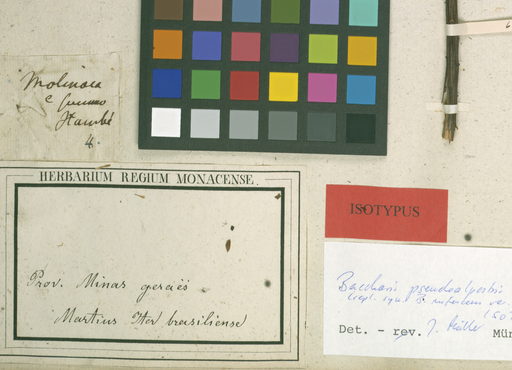 Molinaea
e summo
Itambé
4.
HERBARIUM REGIUM MONACENSE.
Prov. Minas geraës
Martius Iter brasiliense
ISOTYPUS
Baccharis
Det. - rev. J. Müller Mün